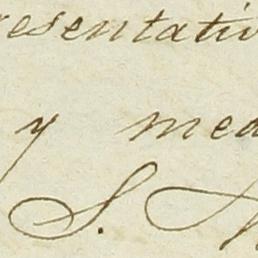 resentativ
y med
S.